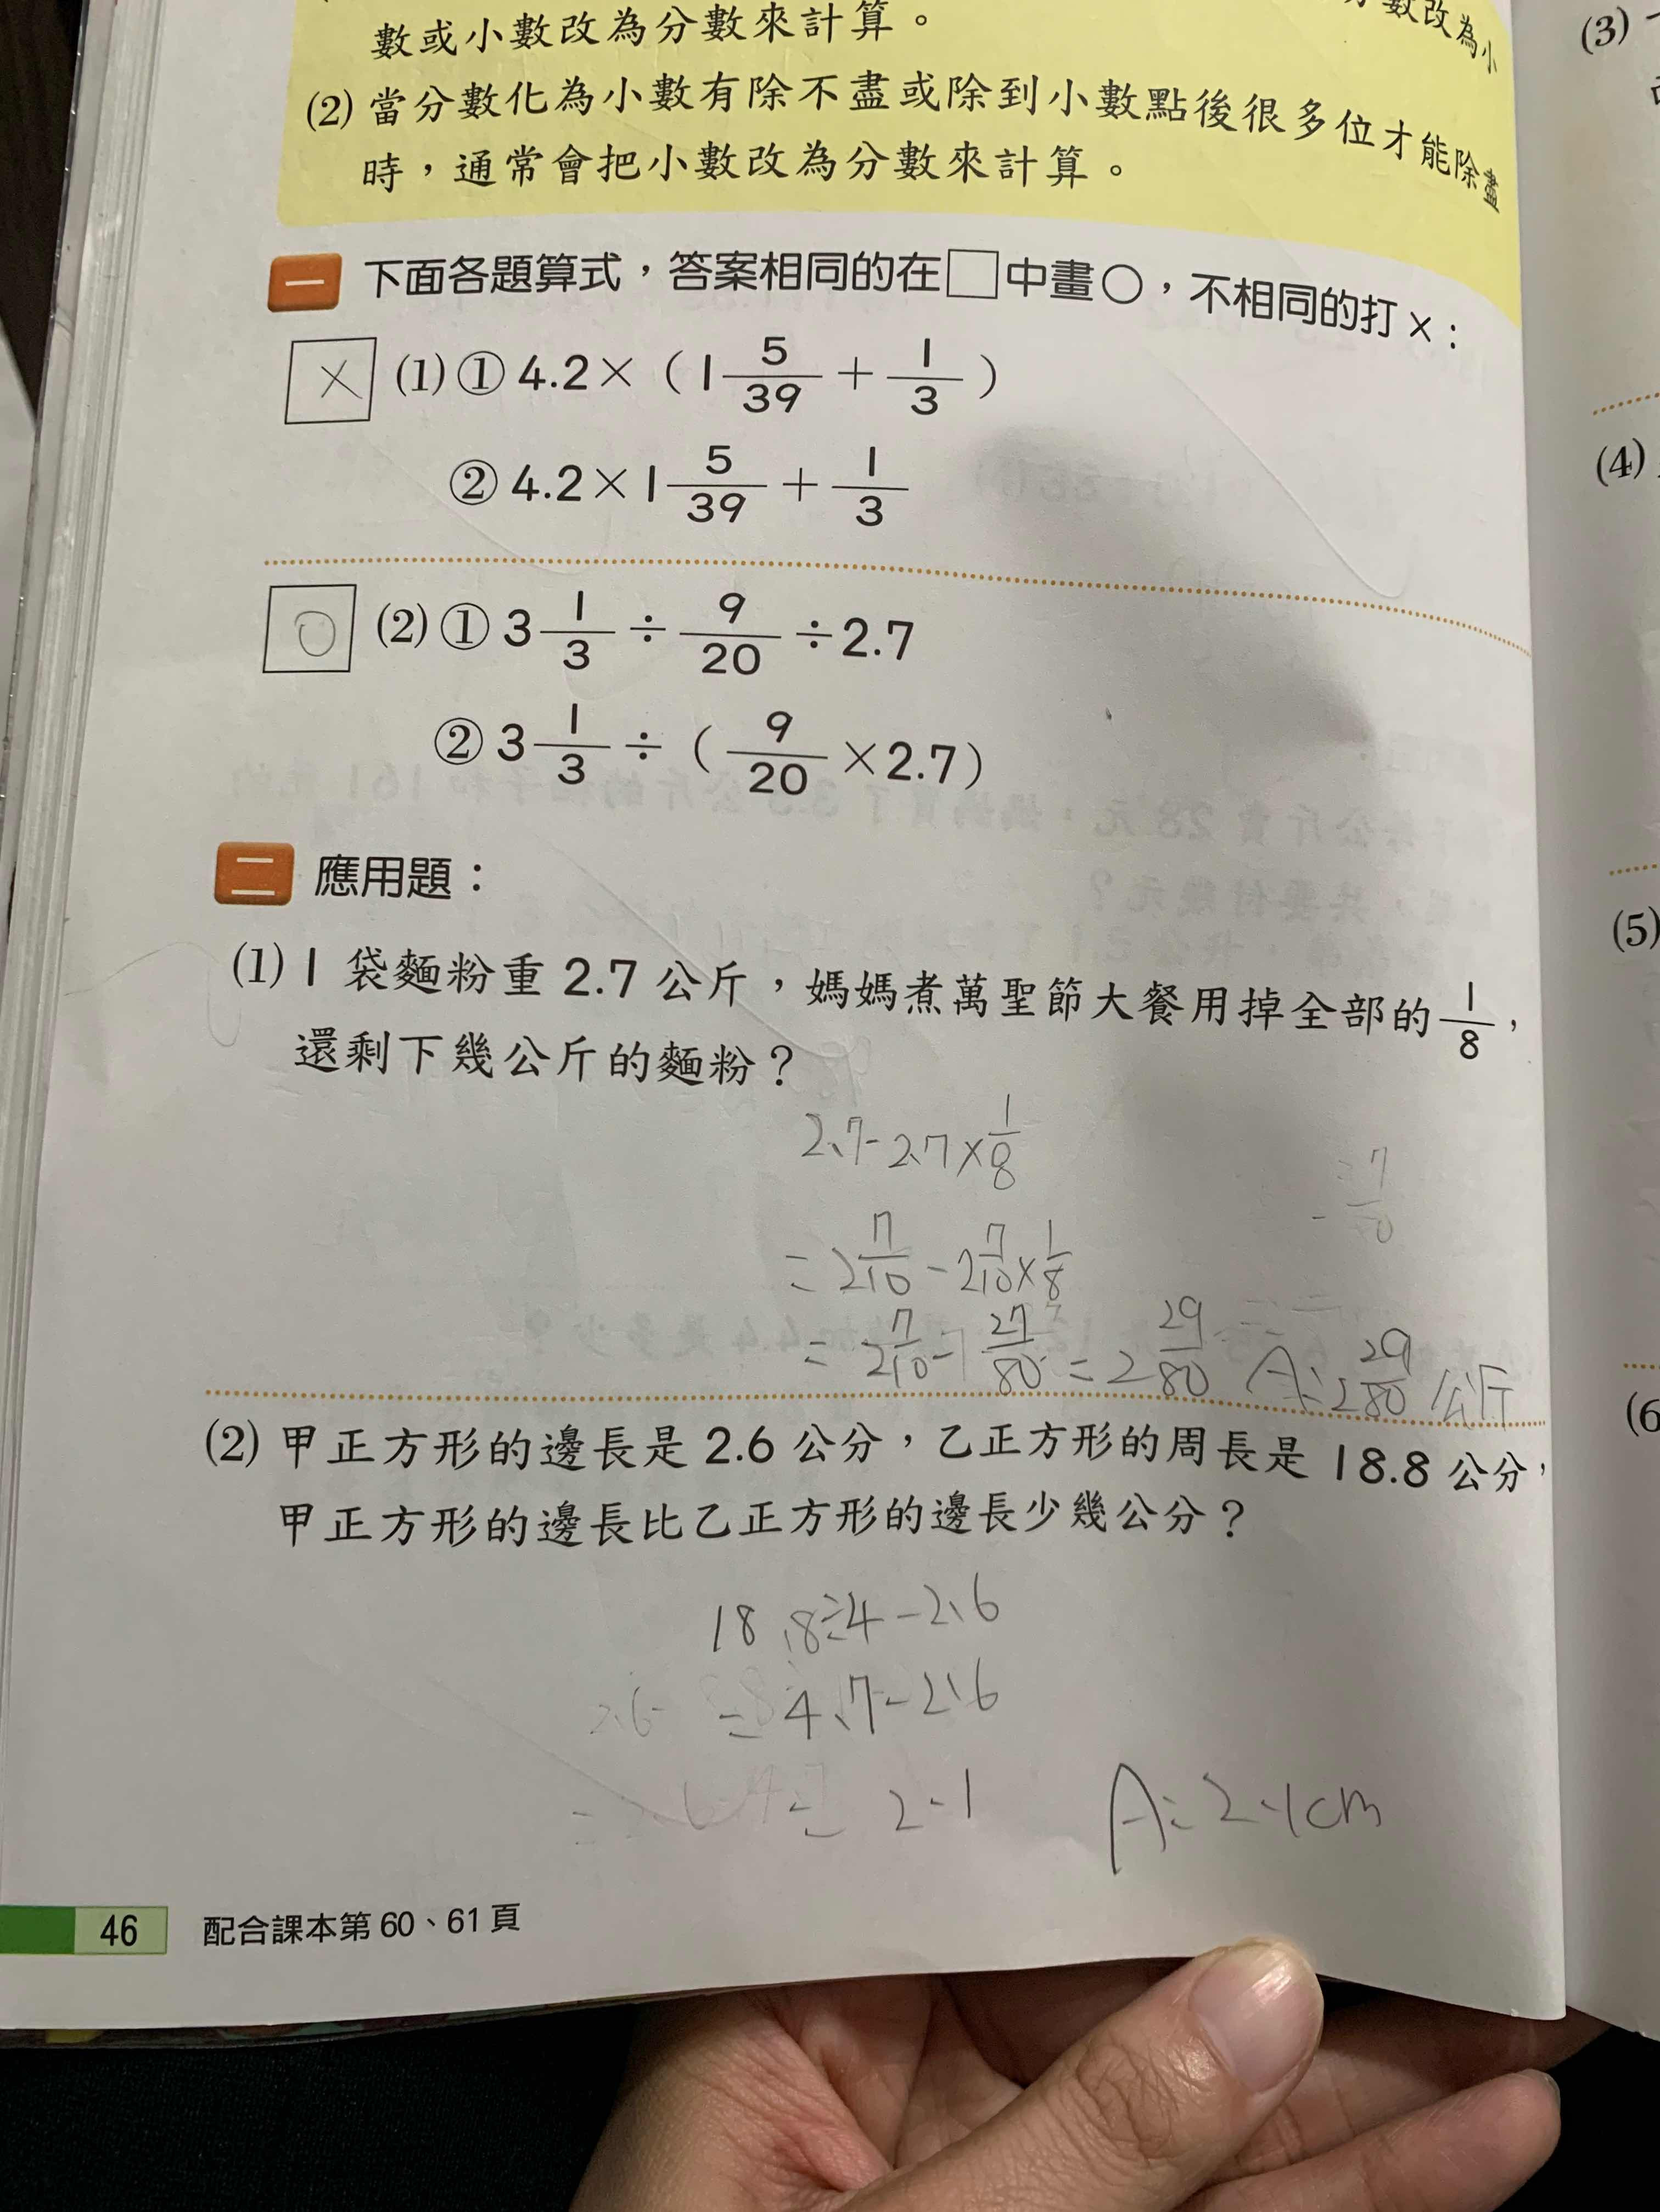 數或小數改為分數來計算。
分數改為小
(2) 當分數化為小數有除不盡或除到小數點後很多位才能除盡
時，通常會把小數改為分數來計算。
一 下面各題算式，答案相同的在□中畫○，不相同的打×：
× (1) ① 4.2×（1 5/39 + 1/3）
② 4.2×1 5/39 + 1/3
○ (2) ① 3 1/3 ÷ 9/20 ÷2.7
② 3 1/3 ÷（9/20 ×2.7）
二 應用題：
(1) 1 袋麵粉重 2.7 公斤，媽媽煮萬聖節大餐用掉全部的 1/8，
還剩下幾公斤的麵粉？
2.7-2.7×1/8
= 2 7/10 - 2 7/10 × 1/8
= 2 7/10 - 27/80 = 2 29/80 A: 2 29/80 公斤
(2) 甲正方形的邊長是 2.6 公分，乙正方形的周長是 18.8 公分，
甲正方形的邊長比乙正方形的邊長少幾公分？
18.8÷4-2.6
= 4.7-2.6
= 2.1 A: 2.1cm
46 配合課本第 60、61 頁
(3)
(4)
(5)
(6